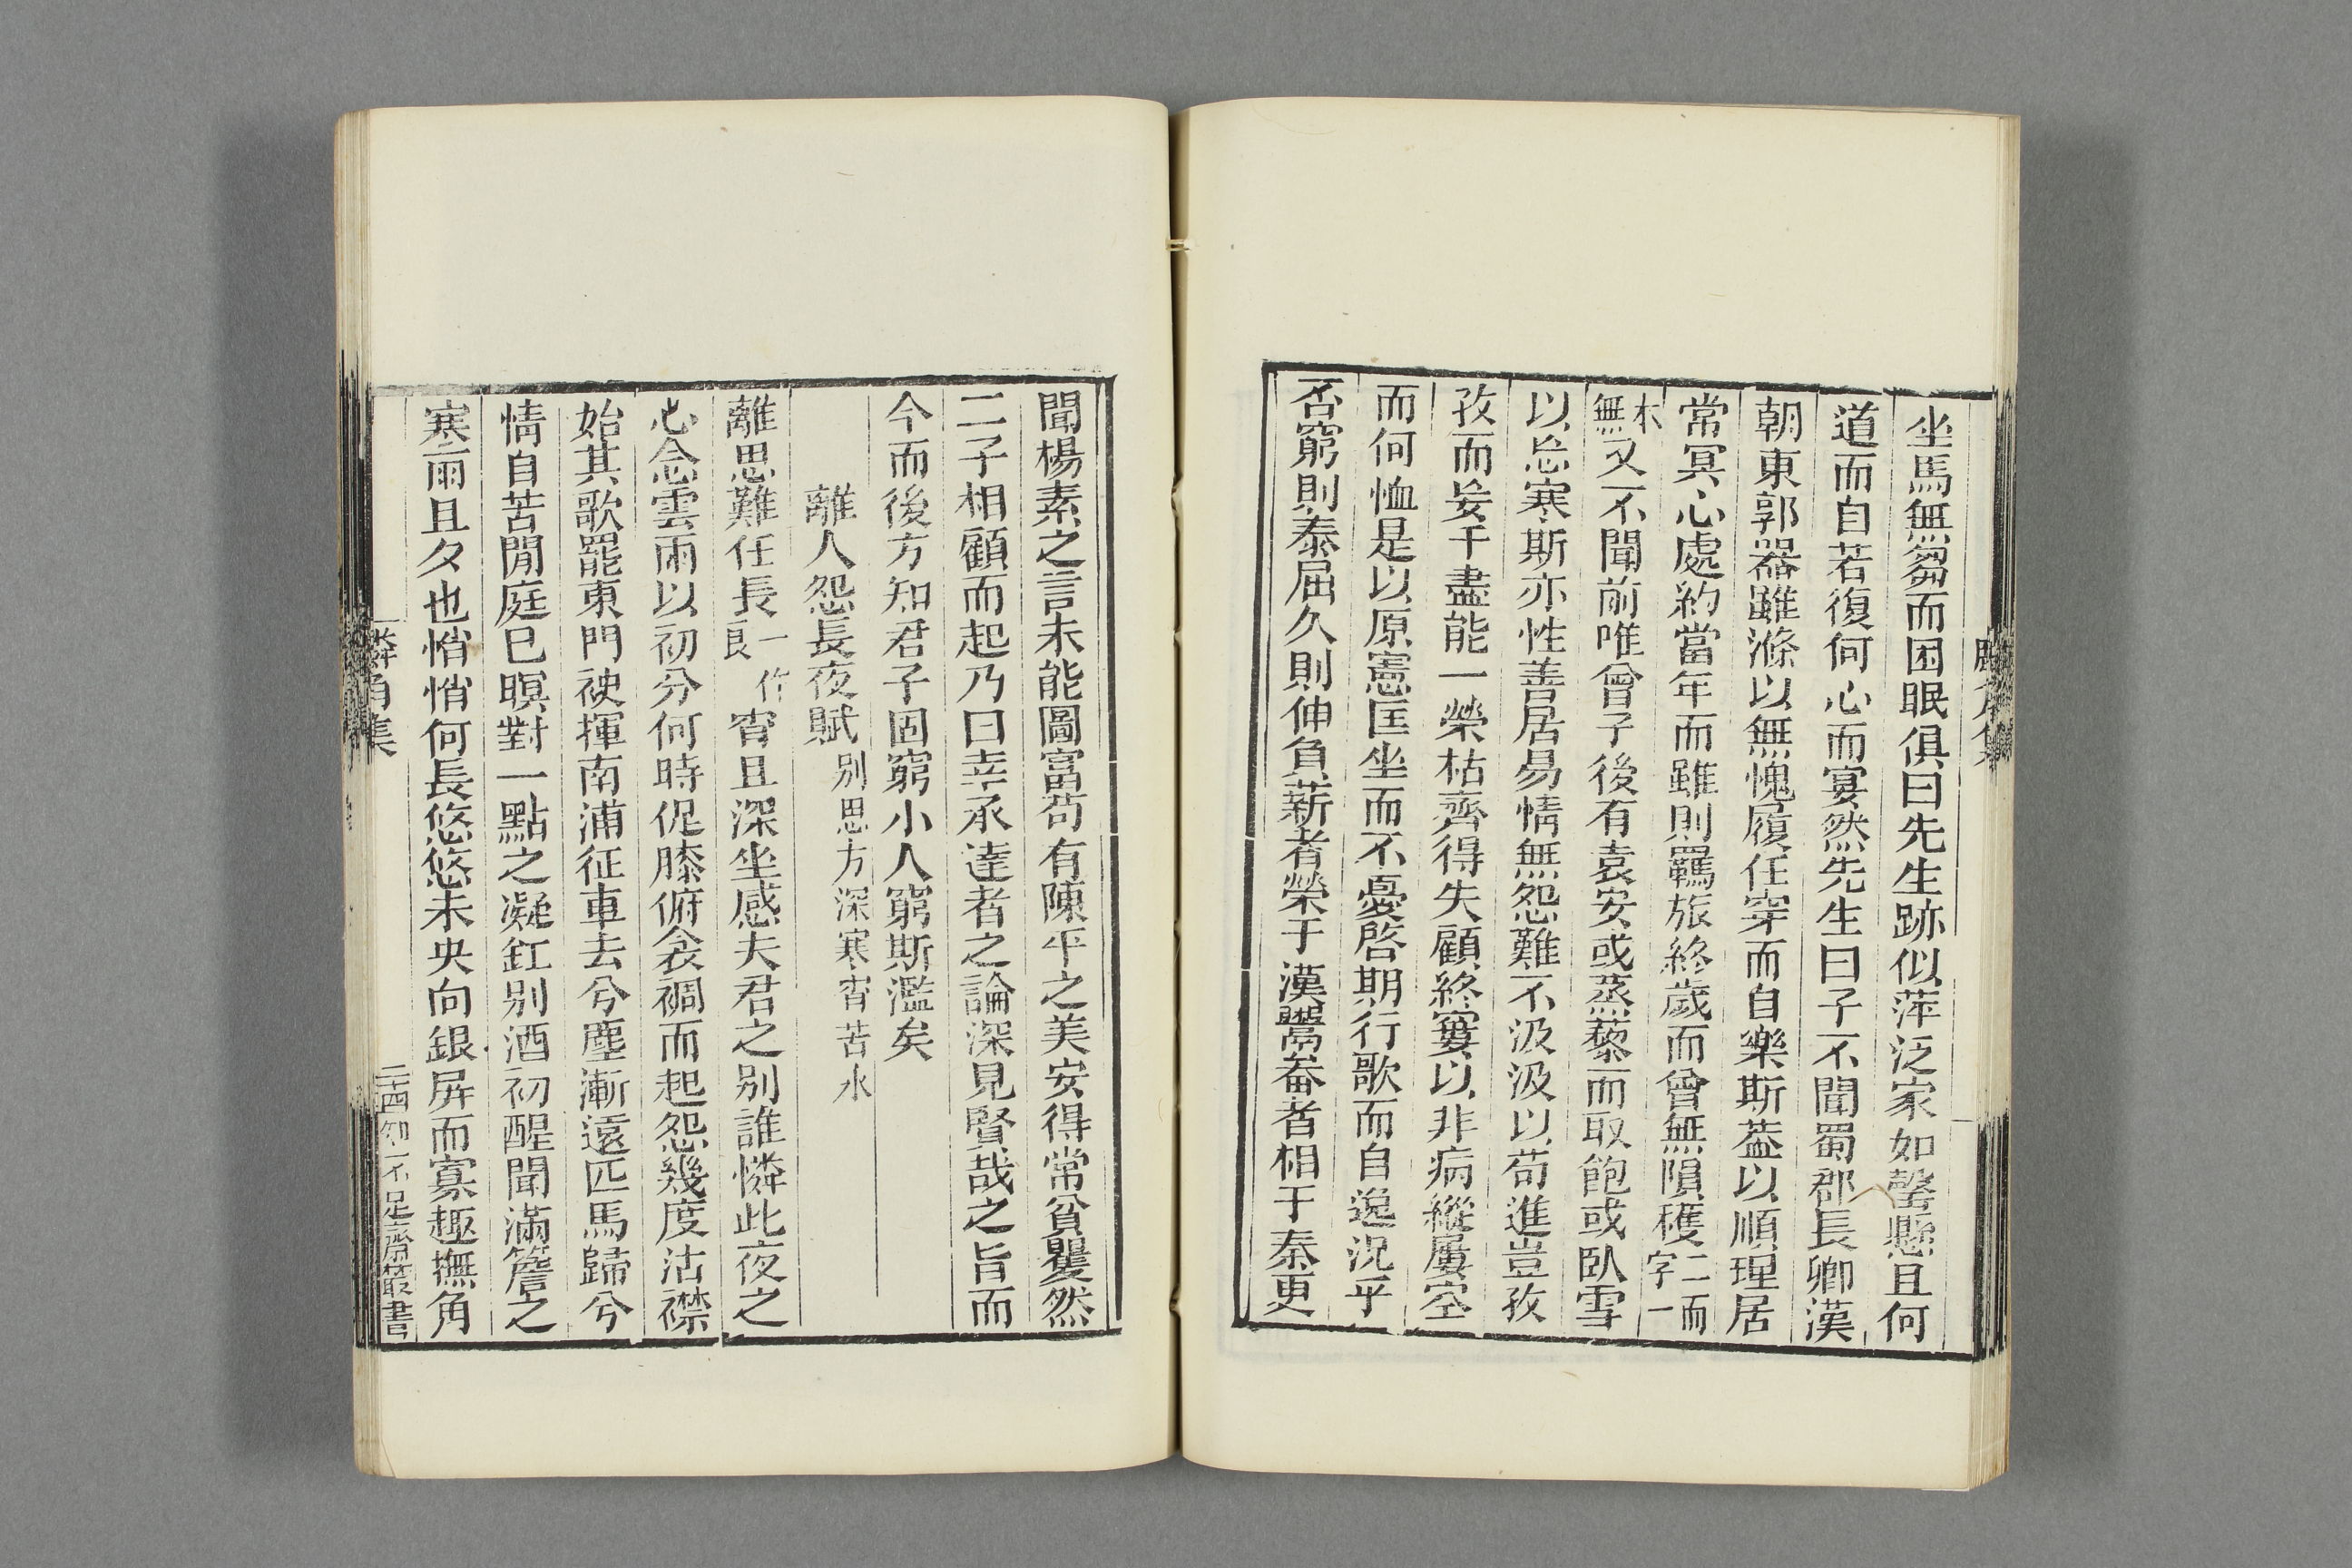 坐馬無芻而困眠俱曰先生跡似萍泛家如罄懸且何
道而自若復何心而宴然先生曰子不聞蜀郡長卿漢
朝東郭器雖滌以無愧履任穿而自樂斯葢以順理居
常冥心處約當年而雖則羈旅終歲而曾無隕穫二而字一
本無又不聞前唯曾子後有袁安或蒸藜而取飽或臥雪
以忘寒斯亦性善居易情無怨難不汲汲以苟進豈孜
孜而妄千盡能一榮枯齊得失顧終窶以非病縱屢空
而何恤是以原憲匡坐而不憂啓期行歌而自逸況乎
否窮則泰屈久則伸負薪者榮于漢鬻畚者相于秦更
聞楊素之言未能圖富苟有陳平之美安得常貧矍然
二子相顧而起乃曰幸承達者之論深見賢哉之旨而
今而後方知君子固窮小人窮斯濫矣
離人怨長夜賦別思方深寒宵苦水
離思難任長一作良宵且深坐感夫君之別誰憐此夜之
心念雲雨以初分何時促膝俯衾裯而起怨幾度沾襟
始其歌罷東門袂揮南浦征車去兮塵漸遠匹馬歸兮
情自苦閒庭巳暝對一點之凝釭別酒初醒聞滿簷之
寒雨且夕也悄悄何長悠悠未央向銀屏而寡趣撫角
麟角集
二四知不足齋叢書